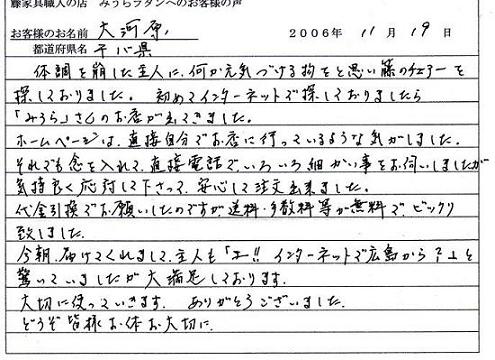 藤家具職人の店 みうらラタンへのお客様の声
お客様のお名前 大河原 2006年 11月 19日
都道府県名 千八県
体調を崩した主人に、何か元気づける物をと思い籐のチェアーを
探しておりました。初めてインターネットで探しておりましたら
「みうら」さんのお店が出てきました。
ホームページは、直接自分でお店に行っているような気がしました。
それでも念を入れて、直接電話でいろいろ細かい事をお伺いしましたが
気持良く応対して下さって、安心して注文出来ました。
代金引換でお願いしたのですが送料・手数料等が無料でビックリ
致しました。
今朝、届けてくれまして、主人も「エー!! インターネットで広島から?」と
驚いていましたが大満足しております。
大切に使っていきます。ありがとうございました。
どうぞ皆様お体お大切に。